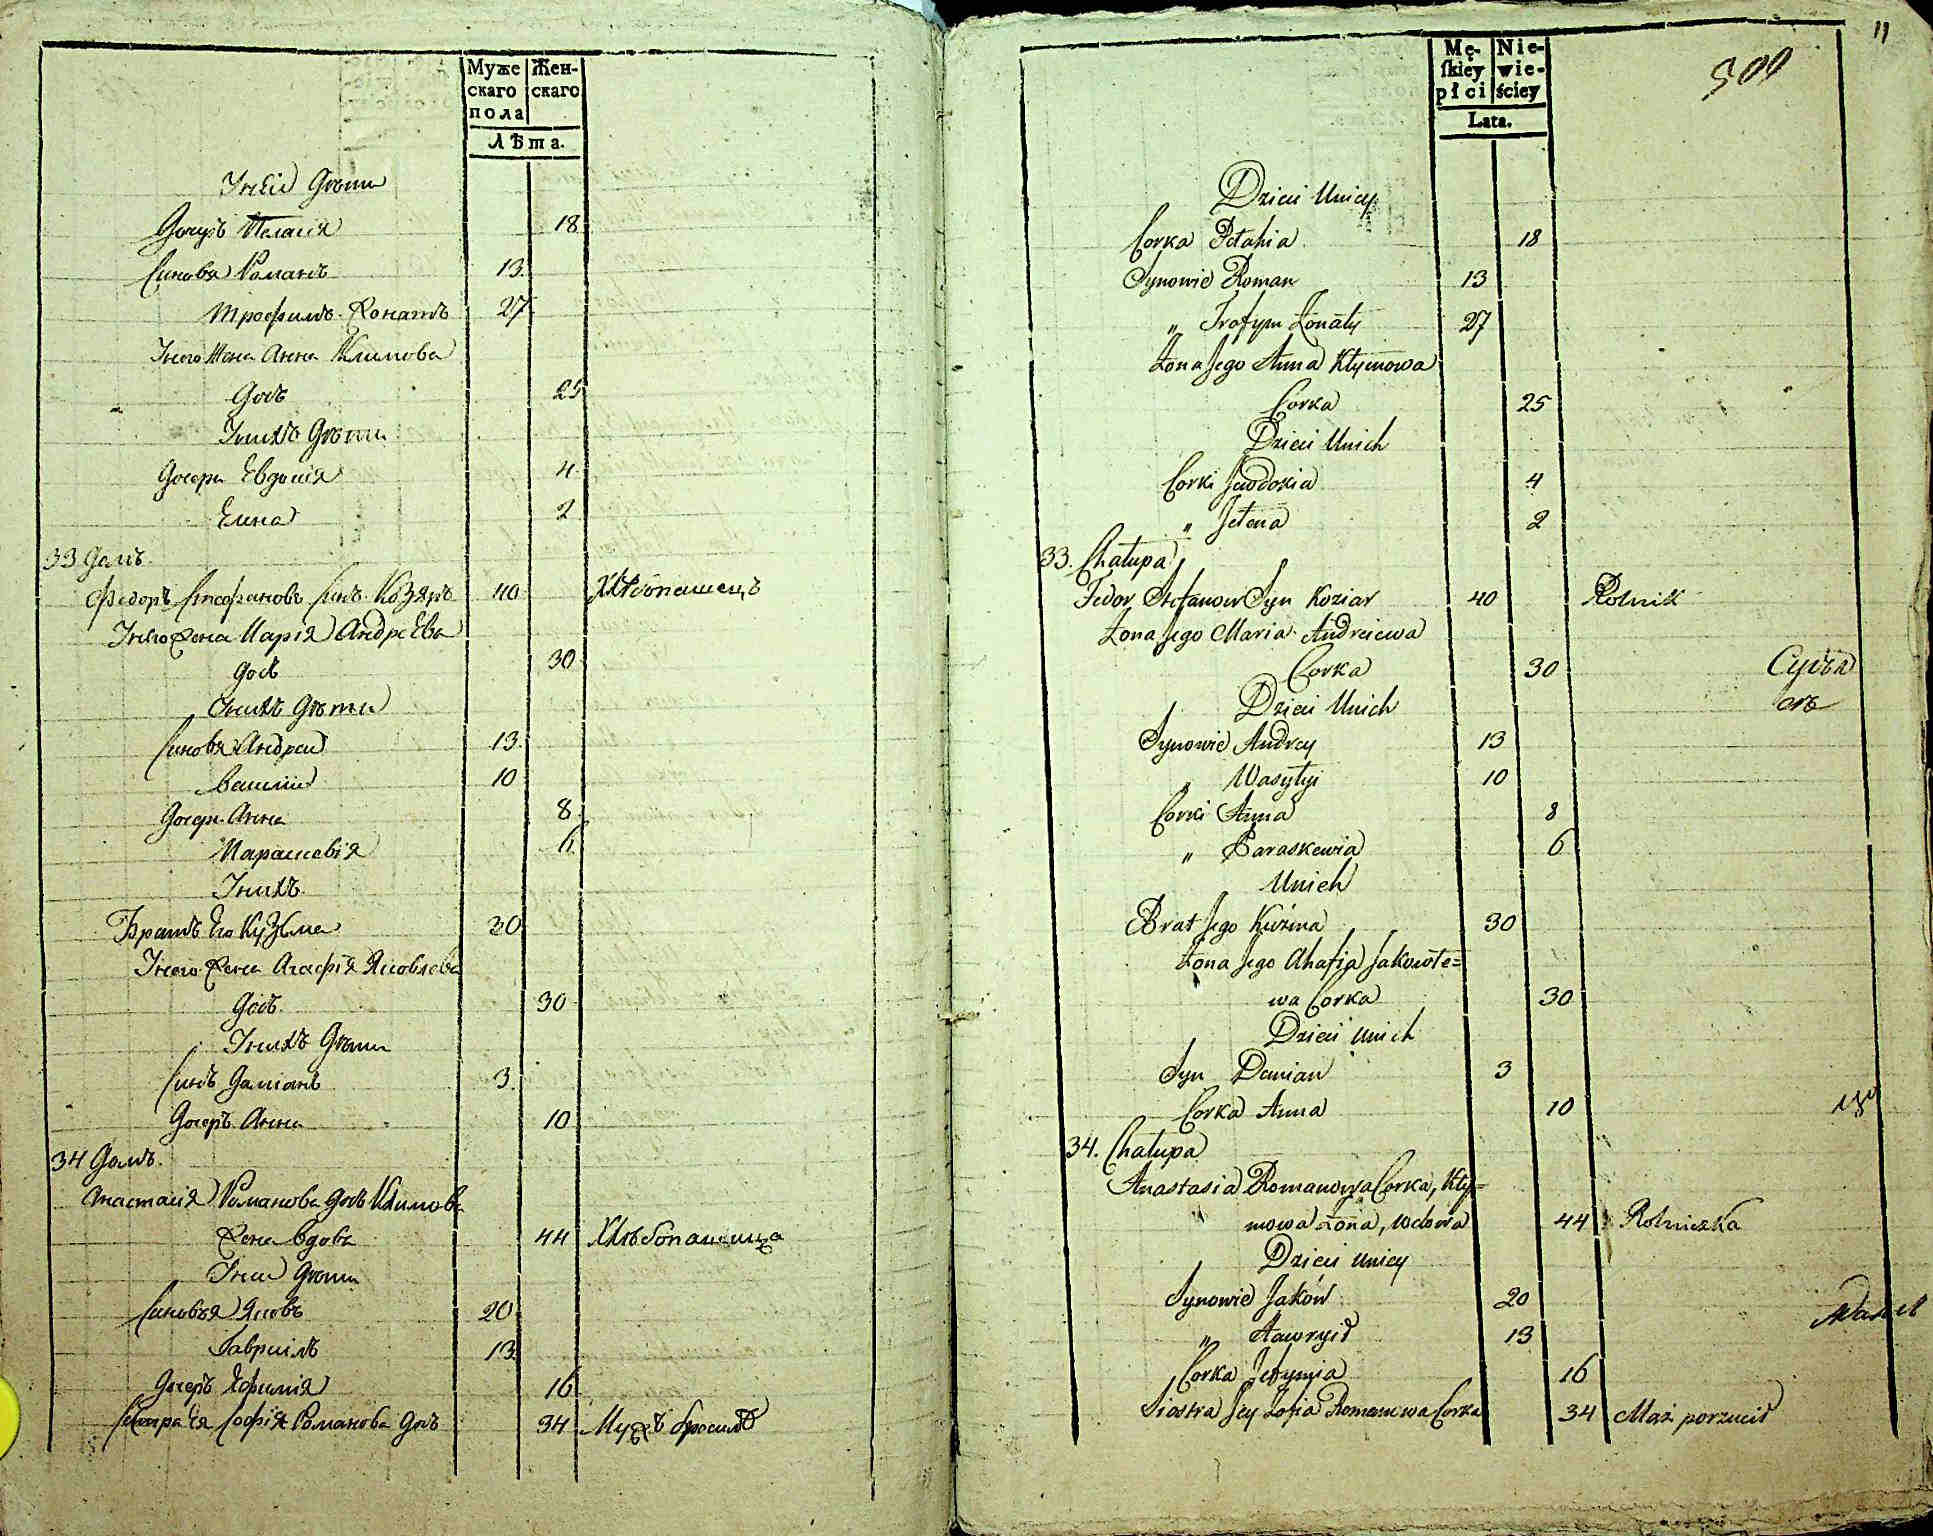 Муже
скаго
пола
Жен-
скаго
Лѣта.
У неи дѣти
Дочерь Пелагія 18
Синовя Романъ 13
Трофимъ Жонатъ 27
У него Жена Анна Климова
Дочь 25
У нихъ Дѣти
Дочери Евдокія 4
Елена 2
33 Домъ.
Федоръ Стефановъ Синъ Козяръ 40 Хлѣбопашецъ
У него Жена Марія Андреева
дочь 30
У нихъ дѣти
Синовя Андреи 13
Василии 10
Дочери Анна 8
Параскевія 6
У нихъ
Братъ Его Кузма 30
У него Жена Агафія Яковлева
Дочь 30
У нихъ Дѣти
Синъ Даміанъ 3
Дочерь Анна 10
34 Домъ.
Анастасія Романова дочь Климова
Жена вдова 44 Хлѣбопашица
У неи Дѣти
Синовья Яковъ 20
Гавриилъ 13
Дочерь Ефимія 16
Сестра Ея Софія Романова дочь 34 Мужъ бросилъ
11
509
Mę-
skiey
płci
Nie-
wie-
ściey
Lata.
Dzieci Unicy
Corka Pełahia 18
Synowie Roman 13
„ Trofym Żonaty 27
Żona Jego Anna Kłymowa
Corka 25
Dzieci Unich
Corki Jewdokia 4
„ Jełena 2
33. Chałupa
Fedor Stefanow Syn Koziar 40 Rolnik
Żona Jego Maria Andreiewa
Corka 30
Dzieci Unich
Synowie Andrey 13
„ Wasyłyi 10
Corki Anna 8
„ Paraskewia 6
Unich
Brat Jego Kuźma 30
Żona Jego Ahafia Jakowłe=
wa Corka 30
Dzieci Unich
Syn Damian 3
Corka Anna 10
34. Chałupa
Anastasia Romanowa Corka, Kły=
mowa Żona, wdowa 44 Rolniczka
Dzieci Unicy
Synowie Jaków 20
„ Hawryił 13
Corka Jefymia 16
Siostra Jey Zofia Romanowa Corka 34 Mąż porzucił